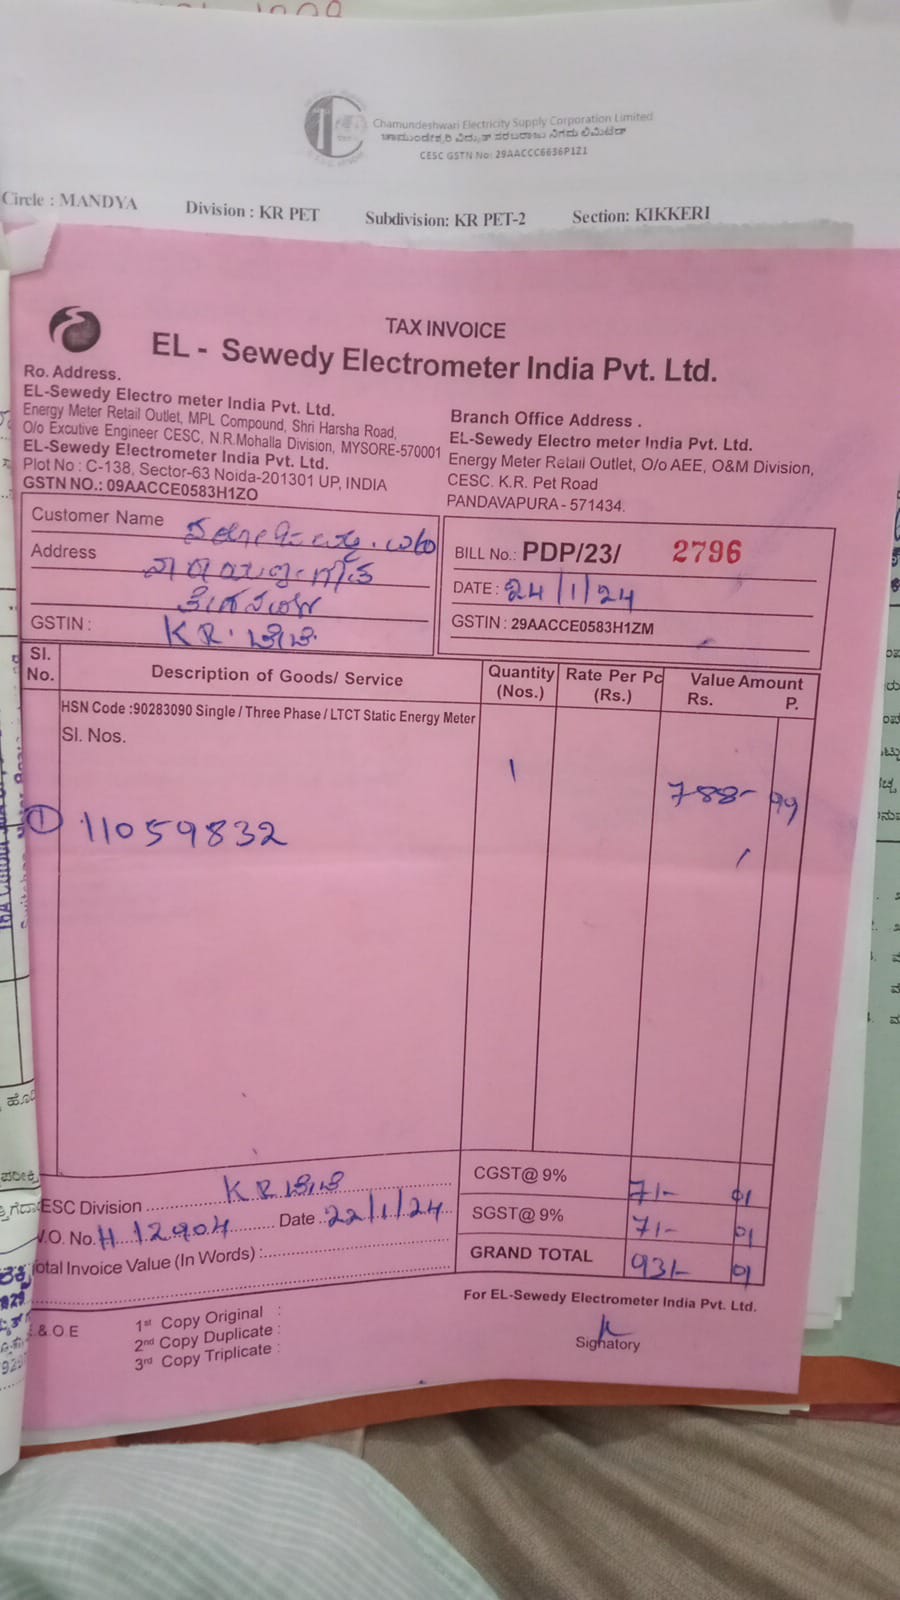 Chamundeshwari Electricity Supply Corporation Limited
ಚಾಮುಂಡೇಶ್ವರಿ ವಿದ್ಯುತ್ ಸರಬರಾಜು ನಿಗಮ ಲಿಮಿಟೆಡ್
CESC GSTN No: 29AACCC6636P1Z1
Circle : MANDYA Division : KR PET Subdivision: KR PET-2 Section: KIKKERI
TAX INVOICE
EL - Sewedy Electrometer India Pvt. Ltd.
Ro. Address.
EL-Sewedy Electro meter India Pvt. Ltd.
Energy Meter Retail Outlet, MPL Compound, Shri Harsha Road,
O/o Excutive Engineer CESC, N.R.Mohalla Division, MYSORE-570001
EL-Sewedy Electrometer India Pvt. Ltd.
Plot No : C-138, Sector-63 Noida-201301 UP, INDIA
GSTN NO.: 09AACCE0583H1ZO
Branch Office Address .
EL-Sewedy Electro meter India Pvt. Ltd.
Energy Meter Retail Outlet, O/o AEE, O&M Division,
CESC. K.R. Pet Road
PANDAVAPURA - 571434.
Customer Name
Address
GSTIN : KR.
BILL No.: PDP/23/ 2796
DATE : 24/1/24
GSTIN : 29AACCE0583H1ZM
Sl. No. Description of Goods/ Service Quantity (Nos.) Rate Per Pc (Rs.) Value Amount Rs. P.
HSN Code :90283090 Single / Three Phase / LTCT Static Energy Meter
Sl. Nos.
1 788- 99
1 11059832
CGST@ 9% 71- 01
SGST@ 9% 71- 01
GRAND TOTAL 931- 01
ESC Division KR
V.O. No. H 12904 Date 22/1/24
otal Invoice Value (In Words) :
For EL-Sewedy Electrometer India Pvt. Ltd.
& O.E
1st Copy Original :
2nd Copy Duplicate :
3rd Copy Triplicate :
Signatory